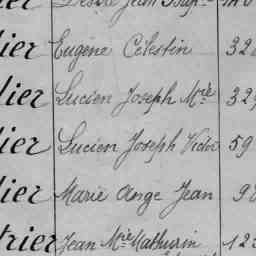 ier Désiré Jean Bapt.
lier Eugène Célestin 328
lier Lucien Joseph Mie 329
lier Lucien Joseph Victor 59
lier Marie Ange Jean 98
trier Jean Mie Mathurin 122